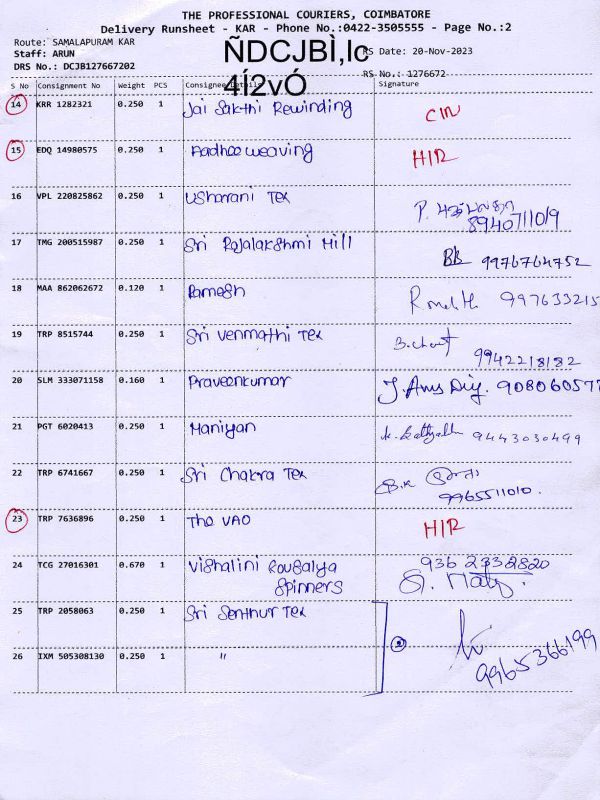 THE PROFESSIONAL COURIERS, COIMBATORE
Delivery Runsheet - KAR - Phone No.:0422-3505555 - Page No.:2
Route: SAMALAPURAM KAR
Staff: ARUN
DRS No.: DCJB127667202
ÑDCJBÌ,lc
4Í2vÓ
RS Date: 20-Nov-2023
RS No.: 1276672
S No Consignment No Weight PCS Consignee Details Signature
14 KRR 1282321 0.250 1 Jai Sakthi Rewinding
15 EDQ 14980575 0.250 1 Aadhee weaving HIR
16 VPL 220825862 0.250 1 Usharani Tex P.
8940711019
17 TMG 200515987 0.250 1 Sri Rajalakshmi Mill 9976764752
18 MAA 862062672 0.120 1 Ramesh 997633215
19 TRP 8515744 0.250 1 Sri Venmathi Tex
9942218182
20 SLM 333071158 0.160 1 Praveenkumar 908060577
21 PGT 6020413 0.250 1 Maniyan 9443030499
22 TRP 6741667 0.250 1 Sri Chakra Tex
9965511010.
23 TRP 7636896 0.250 1 The VAO HIR
24 TCG 27016301 0.670 1 Vishalini Kousalya 936 2332820
Spinners
25 TRP 2058063 0.250 1 Sri Senthur Tex
26 IXM 505308130 0.250 1 " 9965366199